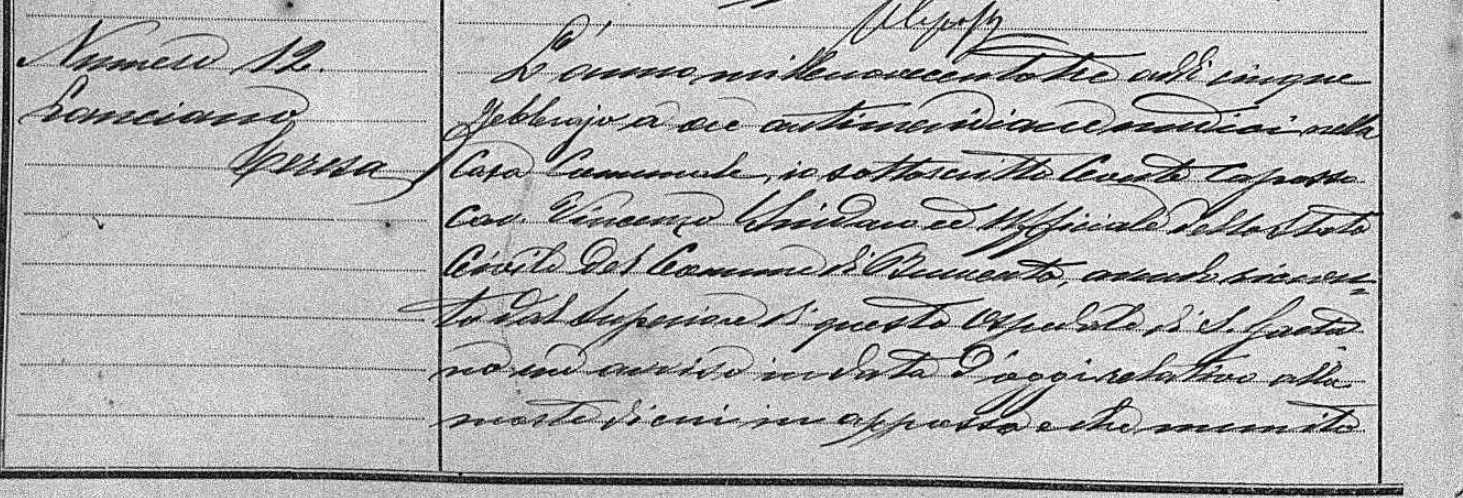 Numero 12.
Lanciano
Teresa
L'anno millenovecentotre addì cinque
Febbrajo a ore antimeridiane undici nella
Casa Comunale, io sottoscritto Conte Capasso
Cav. Vincenzo Sindaco ed Uffiziale dello Stato
Civile del Comune di Benevento, avendo ricevu-
to dal Superiore di questo Ospedale di S. Gaeta
no un avviso in data d'oggi relativo alla
morte di cui in appresso e che munito